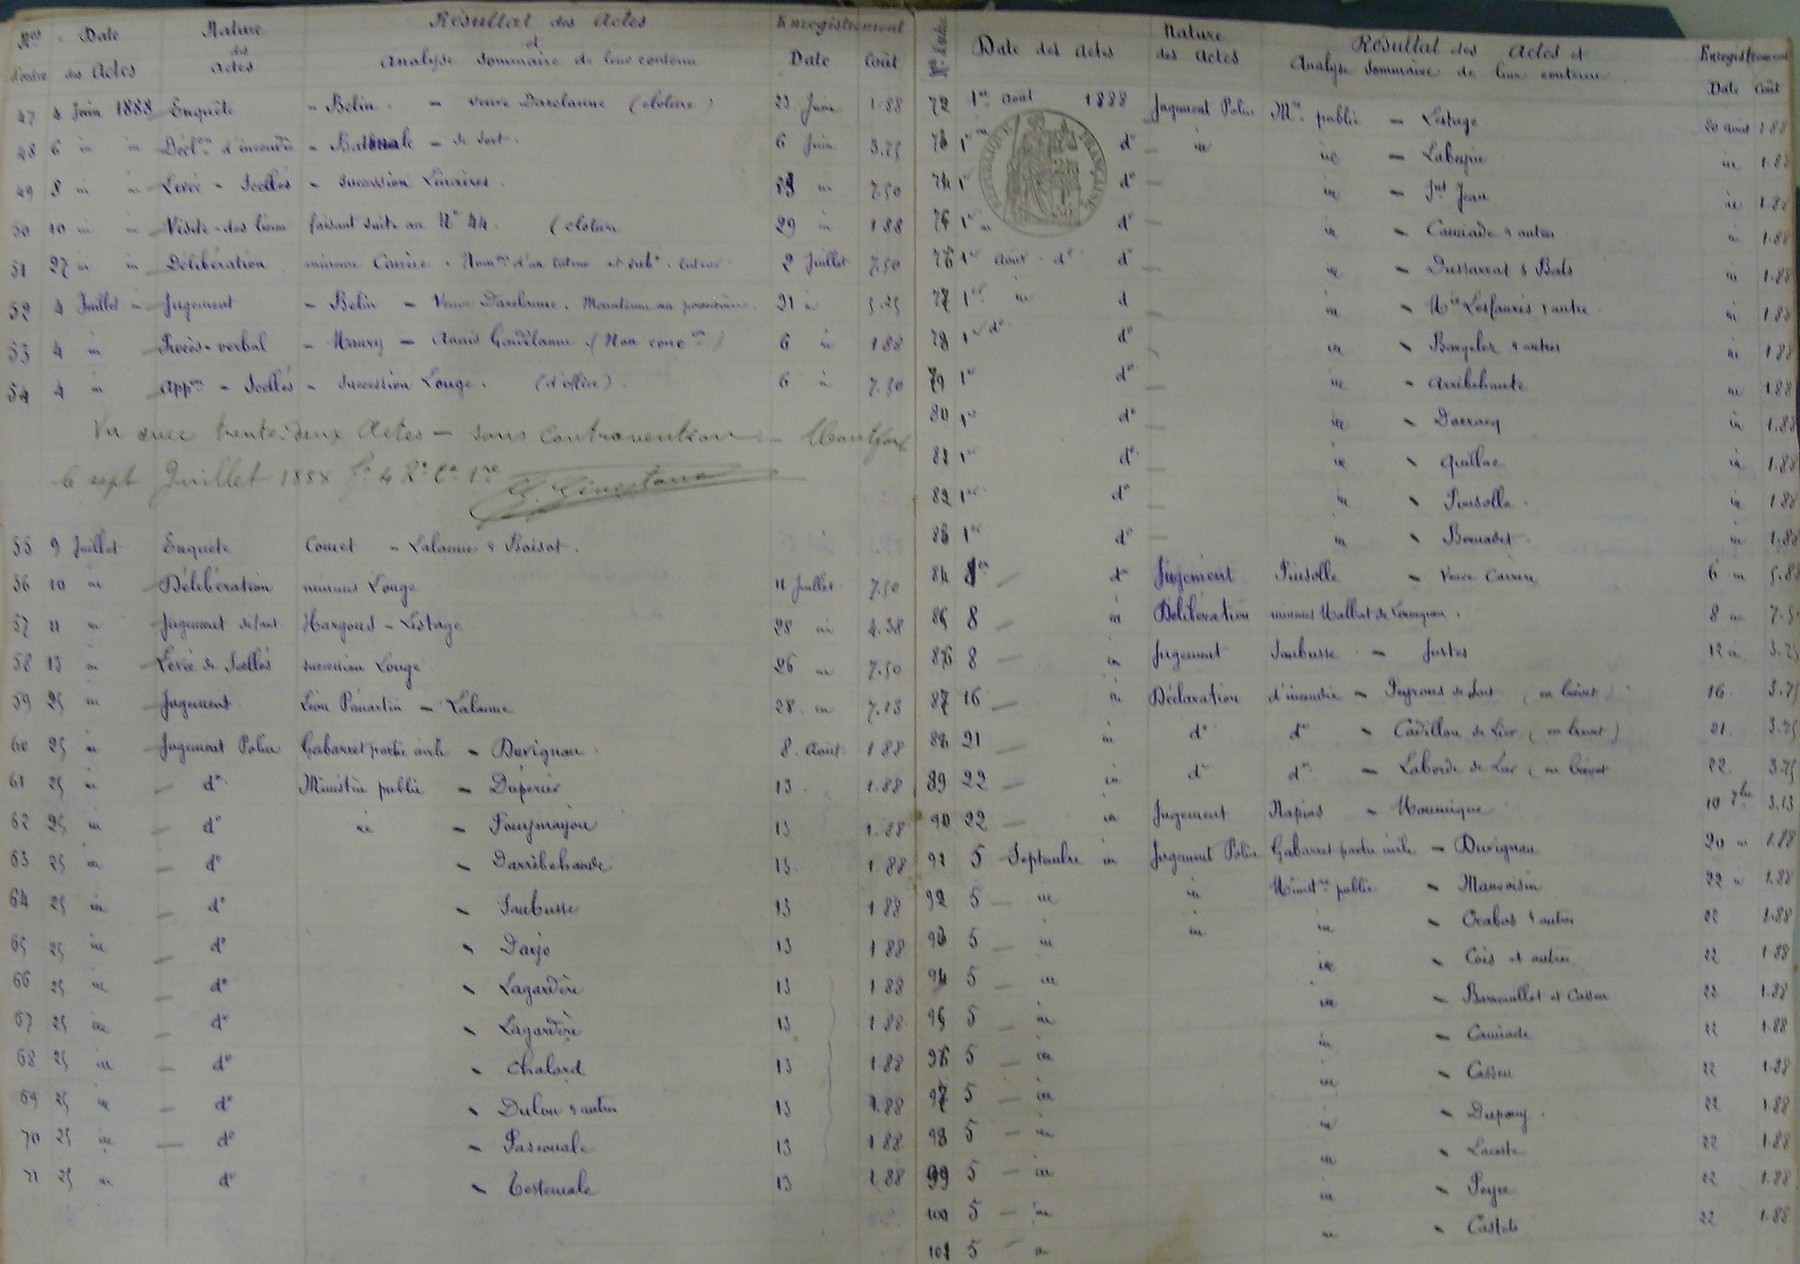 Nos d'ordre Date des Actes Nature des actes Résultat des Actes et Analyse Sommaire de leur contenu Enregistrement Date Coût
47 4 Juin 1888 Enquête - Belin - Veuve Darclanne (cloture) 23 Juin 1.88
48 6 in in Décl.on d'incendie - - de Sort. 6 Juin 3.75
49 8 in in Levée - Scellés - succession in 7.50
50 10 in in Visite des lieux faisant suite au N° 44. (cloture 29 in 1.88
51 27 in in Délibération mineure Carrère - Nom.on d'un tuteur et sub. tuteur 2 Juillet 7.50
52 4 Juillet in Jugement - Belin - Veuve Darclanne. Maintenue au possessoire. 21 in 5.25
53 4 in Procès-verbal - Maury - Anaïs (Non conc.on) 6 in 1.88
54 4 in App.on - Scellés - succession Louge. (d'office). 6 in 7.50
Vu avec trente-deux Actes - sans Contravention. - Montfort
le sept Juillet 1888 f° 4 R° C° 1re
55 9 Juillet Enquête Comet - Lalanne & Boisot.
56 10 in Délibération mineurs Louge 11 Juillet 7.50
57 11 in Jugement défaut Hargous - Lestage 28 in 4.38
58 13 in Levée de Scellés succession Louge 26 in 7.50
59 25 in Jugement Léon - Lalanne 28 in 7.13
60 25 in Jugement Police Gabarret partie civile - Duvignau. 8 Août 1.88
61 25 in d° Ministère public - Dupérier 13 1.88
62 25 in d° in - Pouymayou 13 1.88
63 25 in d° - Darribehaude 13 1.88
64 25 in d° - Saubusse 13 1.88
65 25 in d° - Darjo 13 1.88
66 25 in d° - Lagardère 13 1.88
67 25 in d° - Lagardère 13 1.88
68 25 in d° - Chalard 13 1.88
69 25 in d° - Dulon & autres 13 1.88
70 25 in d° - 13 1.88
71 25 in d° - Testemale 13 1.88
Nos d'ordre Date des Actes Nature des Actes Résultat des Actes et Analyse Sommaire de leur contenu Enregistrement Date Coût
72 1er Août 1888 Jugement Police Mre public - Lestage 20 août 1.88
RÉPUBLIQUE FRANÇAISE
73 1er d° in in - Labeyrie in 1.88
74 1er d° in - St Jean in 1.88
75 1er in d° in - Camiade & autres in 1.88
76 1er Août d° d° in - Dussarrat & Bats in 1.88
77 1er in d in - Lesfauries & autre in 1.88
78 1er d° d° in - & autres in 1.88
79 1er d° in - Arribehaute in 1.88
80 1er d° in - Darracq in 1.88
81 1er d° in - Quillac in 1.88
82 1er d° in - Pinsolle in 1.88
83 1er d° in - Bernadet in 1.88
84 1er d° Jugement Pinsolle - Veuve Carrère 6 in 5.88
85 8 in Délibération mineurs 8 in 7.50
86 8 in Jugement Saubusse - Justes 12 in 3.75
87 16 in Déclaration d'incendie - Peyrous de Sort (en brevet) 16 3.75
88 21 in d° d° - Cadillon de Lier (en brevet) 21 3.75
89 22 in d° d° - Laborde de Lier (en brevet 22 3.75
90 22 in Jugement Napias - 10 7bre 3.13
91 5 Septembre in Jugement Police Gabarret partie civile - Duvignau 20 in 1.88
92 5 in in Minist.re public - Mauvoisin 22 in 1.88
93 5 in in in - Crabos & autres 22 1.88
94 5 in in - Cois et autres 22 1.88
95 5 in in - Barrouillet et Cassen 22 1.88
96 5 in in - Camiade 22 1.88
97 5 in in - Cassen 22 1.88
98 5 in in - Dupouy. 22 1.88
99 5 in in - Lacoste 22 1.88
100 5 in in - Peyre 22 1.88
101 5 in in - Castets 22 1.88